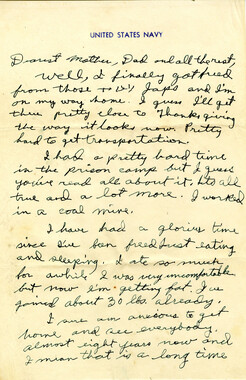 UNITED STATES NAVY
Dearest Mother, Dad and all the rest,
Well, I finally got freed
from those Japs and I'm
on my way home. I guess I'll get
there pretty close to Thanksgiving
the way it looks now. Pretty
hard to get transportation.
I had a pretty hard time
in the prison camp but I guess
you've read all about it. It's all
true and a lot more. I worked
in a coal mine.
I have had a glorious time
since I've ben freed just eating
and sleeping. I ate so much
for awhile I was very uncomfortable
but now I'm getting fat. I've
gained about 30 lbs. already.
I sure am anxious to get
home and see everybody.
almost eight years now and
I mean that is a long time